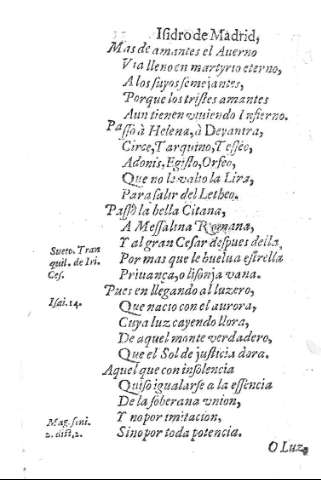 Isidro de Madrid,
Mas de amantes el Auerno
Via lleno en martyrio eterno,
A los suyos semejantes,
Porque los tristes amantes
Aun tienen viuiendo Infierno.
Passò à Helena, à Deyanira,
Circe, Tarquino, Teseo,
Adonis, Egisto, Orfeo,
Que no le valio la Lira,
Para salir del Letheo.
Passò la bella Citana,
A Messalina Romana,
Y al gran Cesar despues della,
Sueto. Tran
Por mas que le buelua estrella
quil. de
Ces.
Priuança, o lisonja vana.
Pues en llegando al luzero,
Isai. 14.
Que nacio con el aurora,
Cuya luz cayendo llora,
De aquel monte verdadero,
Que el Sol de justicia dora.
Aquel que con insolencia
Quiso igualarse a la essencia
De la soberana vnion,
Mag. seni.
Y no por imitacion,
2. dist. 2.
Sino por toda potencia.
O Luz,